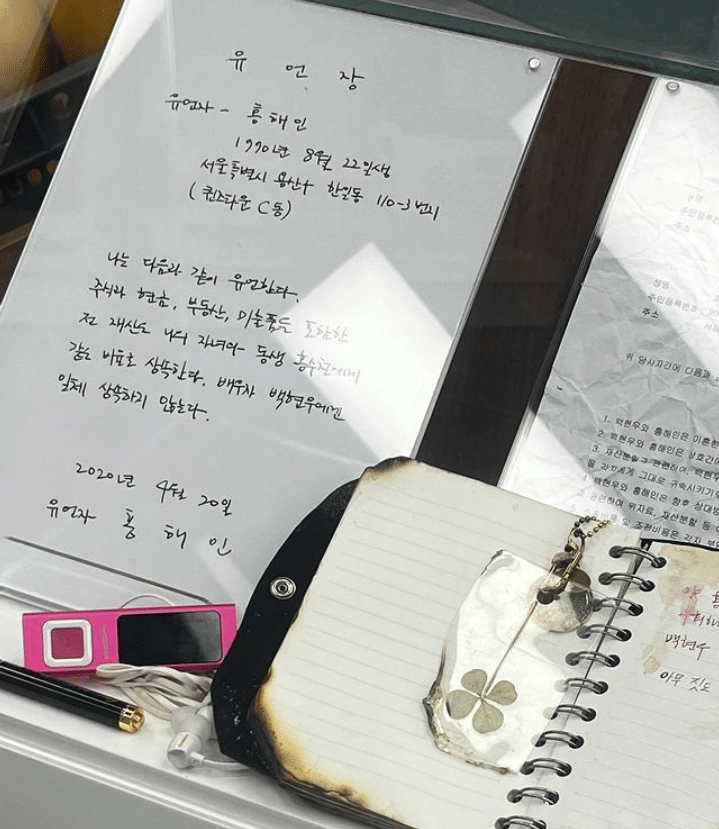 유 언 장
유언자 - 홍해인
1990년 8월 22일생
서울특별시 용산구 한일동 110-3번지
(퀸즈타운 C동)
나는 다음과 같이 유언한다.
주식과 현금, 부동산, 미술품을 포함한
전 재산을 나의 자녀와 동생 홍수철에게
같은 비율로 상속한다. 배우자 백현우에겐
일체 상속하지 않는다.
2020년 4월 20일
유언자 홍 해 인
성명
주민등록번호
주소
성명
주민등록번호
주소
위 당사자간에 다음과
1. 백현우와 홍해인은 이혼한
2. 백현우와 홍해인은 상호간에
3. 재산분할과 관련하여, 백현우
을 각자에게 그대로 귀속시키기
4. 백현우와 홍해인은 향후 상대방
관련하여 위자료, 재산분할 등
및 조정비용은 각자
백현우
아무 짓도